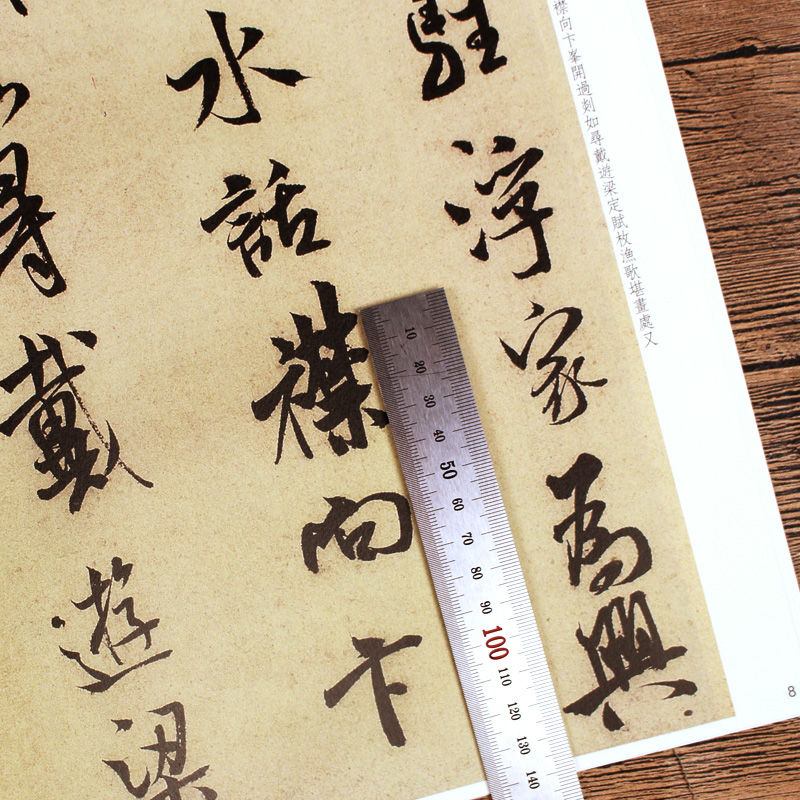 襟向卞峯開過剡如尋戴遊梁定賦枚漁歌堪畫處又
駐浮家為興
水話襟向卞
尋戴遊梁
8
10 20 30 40 50 60 70 80 90 100 110 120 130 140